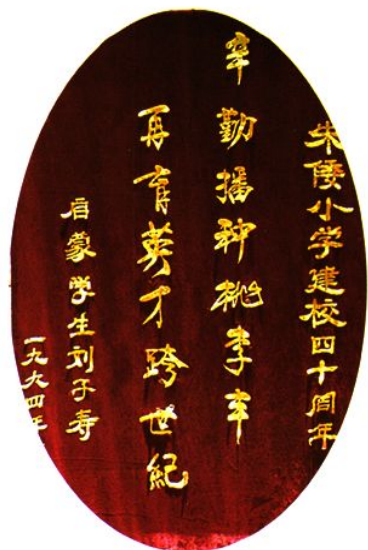 朱倭小学建校四十周年
辛勤播种桃李丰
再育英才跨世纪
启蒙学生刘子寿
一九九四年